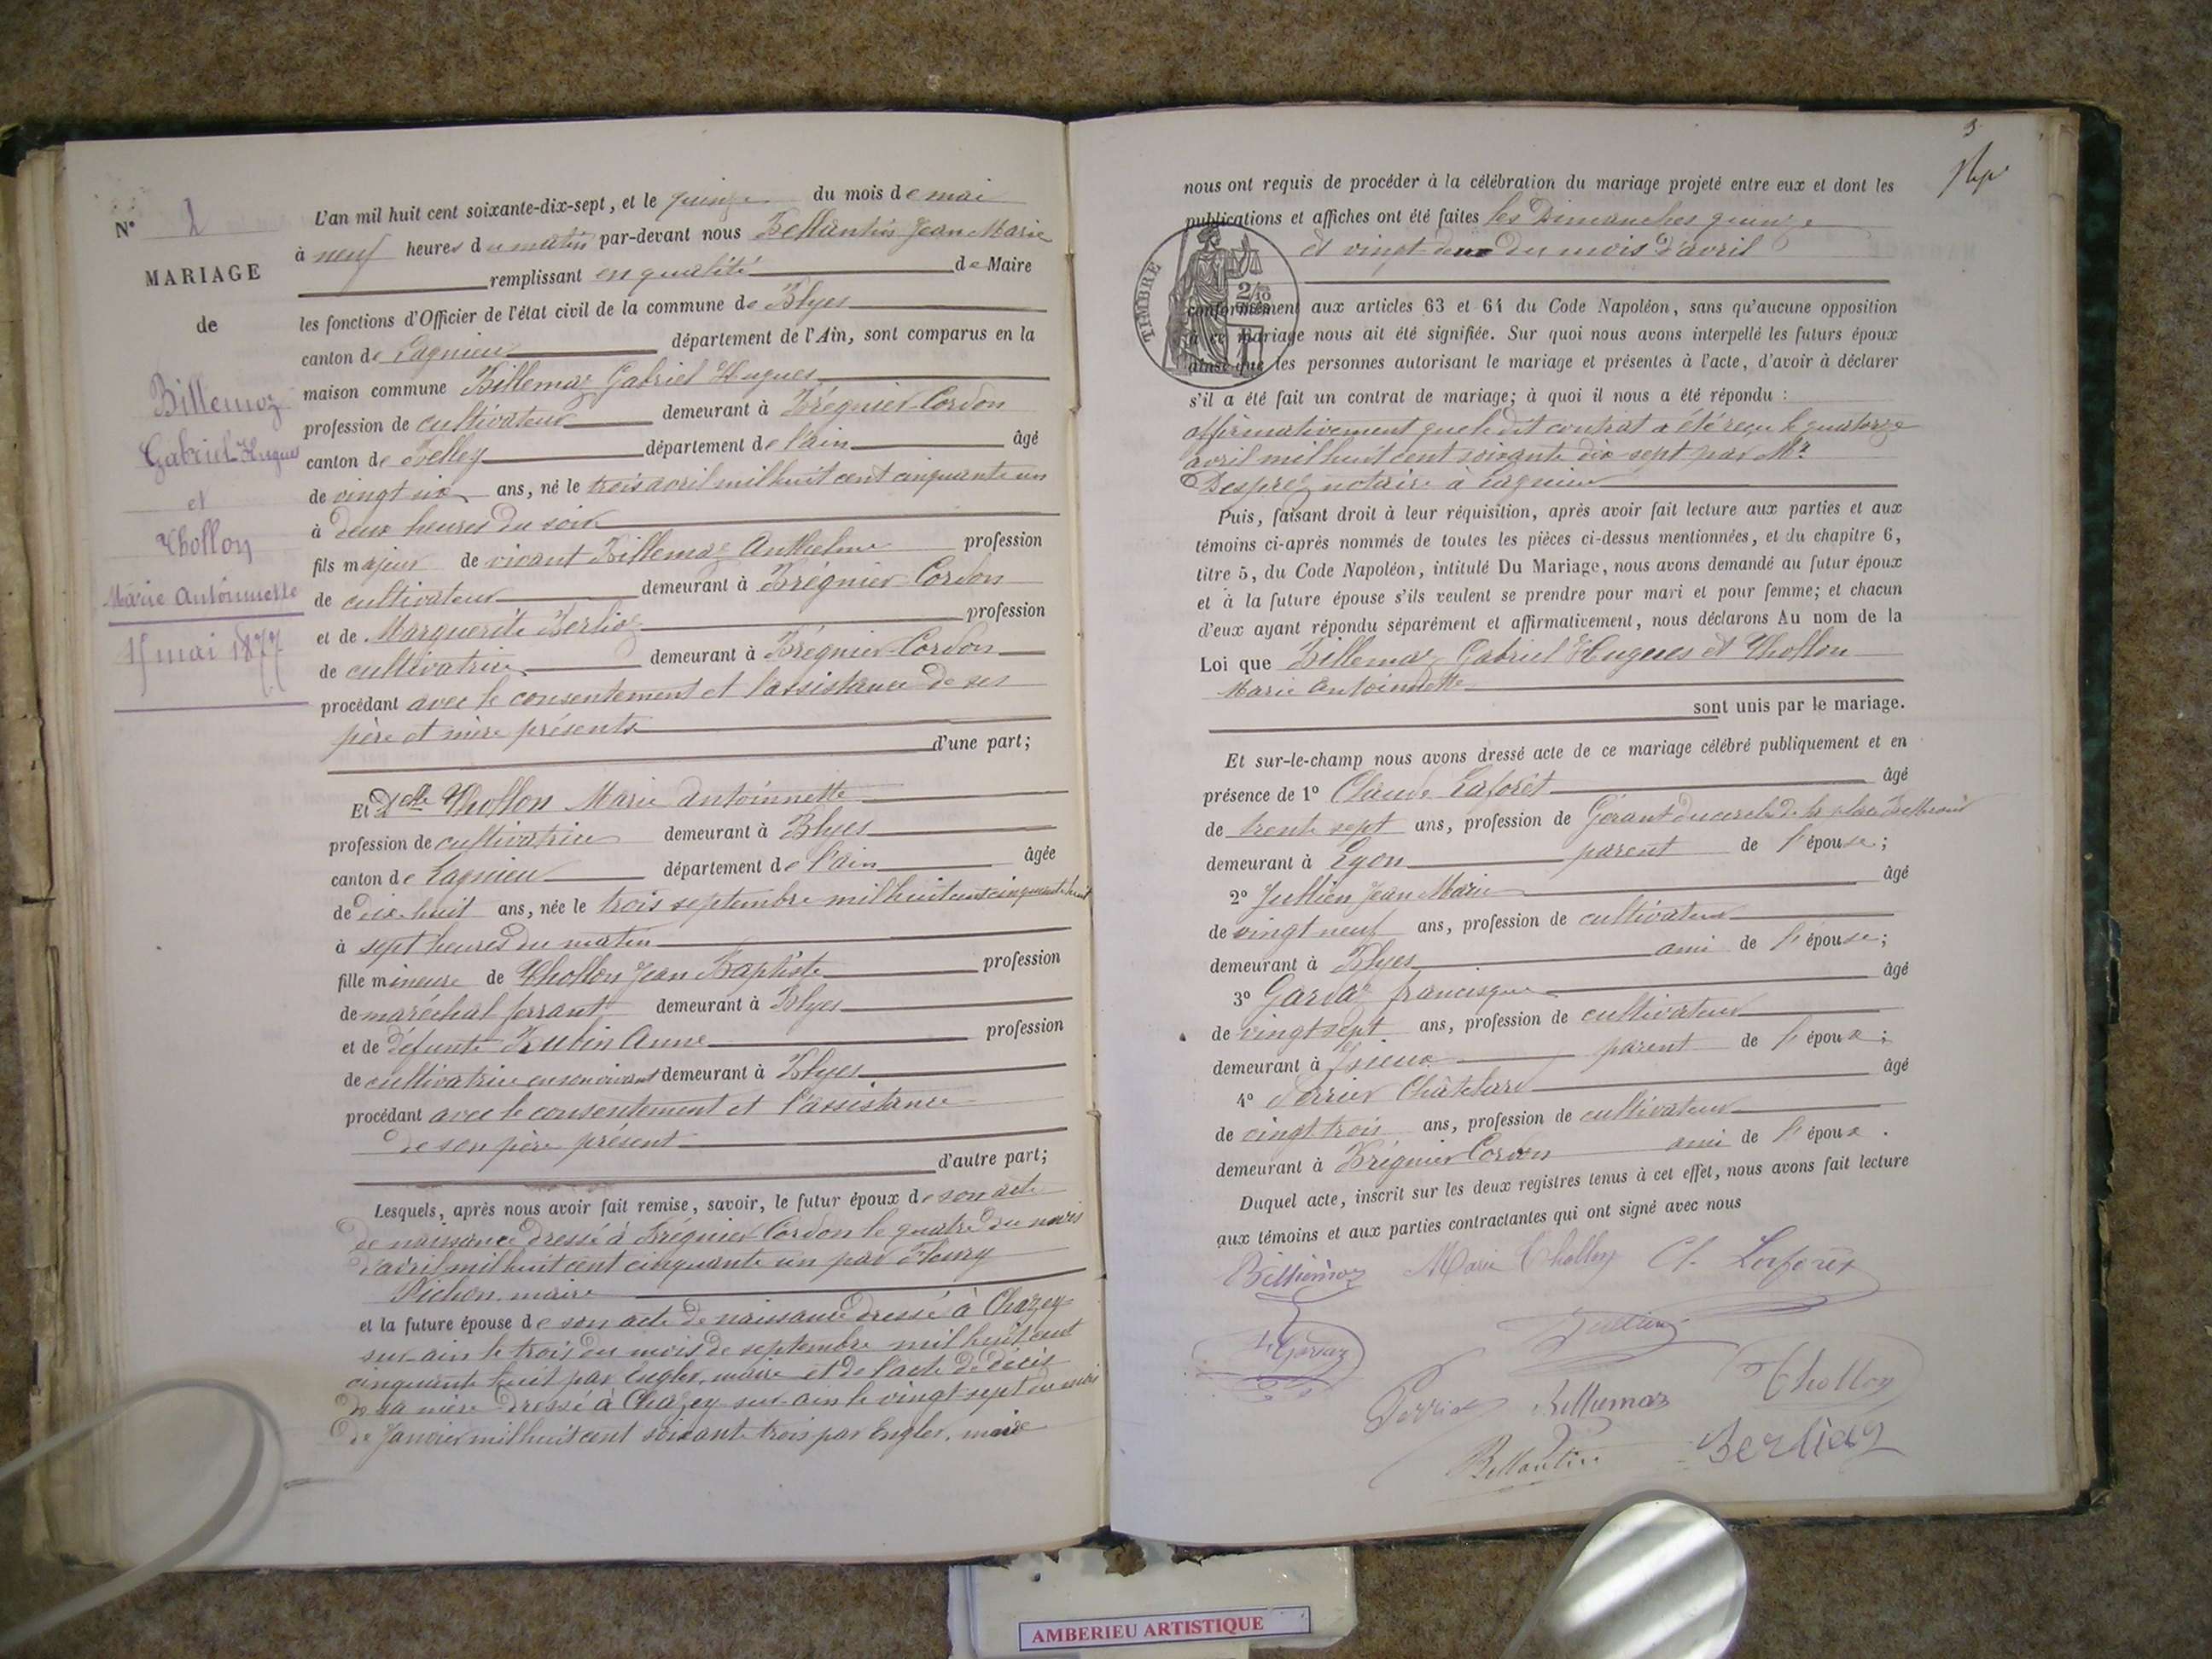 N° 2
MARIAGE
de
Billemaz
Gabriel Hugues
et
Thollon
Marie Antoinnette
15 mai 1877
L'an mil huit cent soixante-dix-sept, et le quinze du mois de mai
à neuf heures du matin par-devant nous Bellantin Jean Marie
remplissant en qualité de Maire
les fonctions d'Officier de l'état civil de la commune de Blyes
canton de Lagnieu département de l'Ain, sont comparus en la
maison commune Billemaz Gabriel Hugues
profession de cultivateur demeurant à Brégnier-Cordon
canton de Belley département de l'ain âgé
de vingt six ans, né le trois avril mil huit cent cinquante un
à deux heures du soir
fils majeur de vivant Billemaz Anthelme profession
de cultivateur demeurant à Brégnier-Cordon
et de Marguerite Berlioz profession
de cultivatrice demeurant à Brégnier-Cordon
procédant avec le consentement et l'assistance de ses
père et mère présents
d'une part;
Et Delle Thollon Marie Antoinnette
profession de cultivatrice demeurant à Blyes
canton de Lagnieu département de l'ain âgée
de dix-huit ans, née le trois septembre mil huit cent cinquante huit
à sept heures du matin
fille mineure de Thollon Jean Baptiste profession
de maréchal ferrant demeurant à Blyes
et de défunte Aubin Anne profession
de cultivatrice en son vivant demeurant à Blyes
procédant avec le consentement et l'assistance
de son père présent
d'autre part;
Lesquels, après nous avoir fait remise, savoir, le futur époux de son acte
de naissance dressé à Brégnier Cordon le quatre du mois
d'avril mil huit cent cinquante un par Fleury
Pichon maire
et la future épouse de son acte de naissance dressé à Chazey
sur-ain le trois du mois de septembre mil huit cent
cinquante huit par Engler, maire et de l'acte de décès
de sa mère dressé à Chazey sur-ain le vingt-sept du mois
de Janvier mil huit cent soixante trois par Engler, maire
3
nous ont requis de procéder à la célébration du mariage projeté entre eux et dont les
publications et affiches ont été faites les Dimanches quinze
et vingt-deux du mois d'avril
TIMBRE
2/10
conformément aux articles 63 et 64 du Code Napoléon, sans qu'aucune opposition
à ce mariage nous ait été signifiée. Sur quoi nous avons interpellé les futurs époux
ainsi que les personnes autorisant le mariage et présentes à l'acte, d'avoir à déclarer
s'il a été fait un contrat de mariage; à quoi il nous a été répondu :
affirmativement que le dit contrat a été reçu le quatorze
avril mil huit cent soixante dix-sept par Mr
Desprez notaire à Lagnieu
Puis, faisant droit à leur réquisition, après avoir fait lecture aux parties et aux
témoins ci-après nommés de toutes les pièces ci-dessus mentionnées, et du chapitre 6,
titre 5, du Code Napoléon, intitulé Du Mariage, nous avons demandé au futur époux
et à la future épouse s'ils veulent se prendre pour mari et pour femme; et chacun
d'eux ayant répondu séparément et affirmativement, nous déclarons Au nom de la
Loi que Billemaz Gabriel Hugues et Thollon
Marie Antoinnette
sont unis par le mariage.
Et sur-le-champ nous avons dressé acte de ce mariage célébré publiquement et en
présence de 1° Claude Laforêt âgé
de trente sept ans, profession de Gérant du cercle de la place Bellecour
demeurant à Lyon parent de l'épouse;
2° Jullien Jean Marie âgé
de vingt neuf ans, profession de cultivateur
demeurant à Blyes ami de l'épouse;
3° Gardaz francisque âgé
de vingt sept ans, profession de cultivateur
demeurant à parent de l'époux;
4° Perrier Châtelard âgé
de vingt trois ans, profession de cultivateur
demeurant à Brégnier Cordon ami de l'époux.
Duquel acte, inscrit sur les deux registres tenus à cet effet, nous avons fait lecture
aux témoins et aux parties contractantes qui ont signé avec nous
Billemaz Marie Thollon Cl. Laforêt
Gardaz Jullien
Perrier Billemaz Thollon
Bellantin Berlioz
AMBERIEU ARTISTIQUE